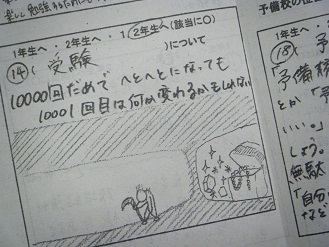 1年生へ・2年生へ・1・2年生へ(該当に○)
(14)( 受験 )について
10000回だめで へとへとになっても
10001回目は何か変わるかもしれない
予備校の
(18)(予
「予備校
とか「予
いい。」
しょう。
無駄
「自分
など